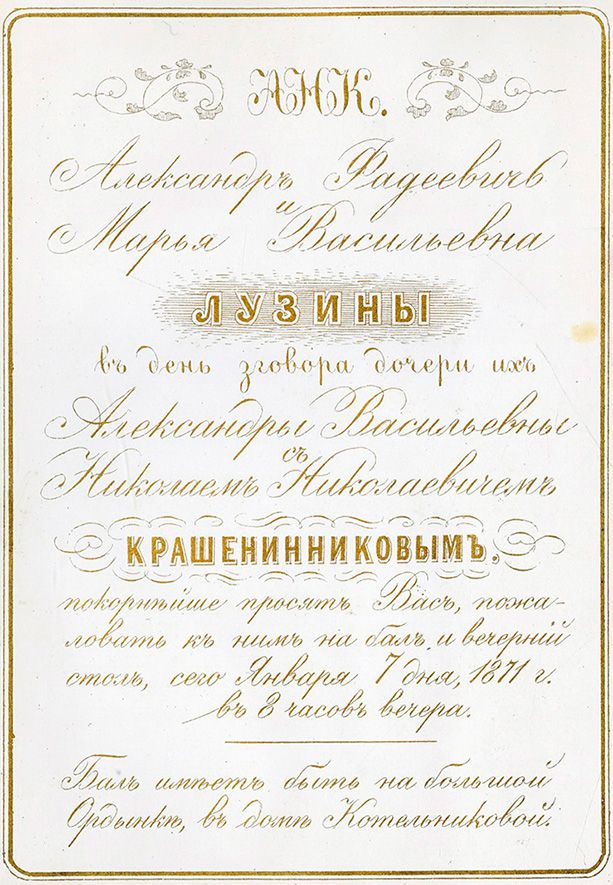 АНК.
Александръ Фадеевичъ
и
Марья Васильевна
ЛУЗИНЫ
въ день зговора дочери ихъ
Александры Васильевны
съ
Николаемъ Николаевичемъ
КРАШЕНИННИКОВЫМЪ.
покорнѣйше просятъ Васъ, пожа-
ловать къ нимъ на балъ и вечерній
столъ, сего Января 7 дня, 1871 г.
въ 8 часовъ вечера.
Балъ имѣетъ быть на большой
Ордынкѣ, въ домѣ Котельниковой.